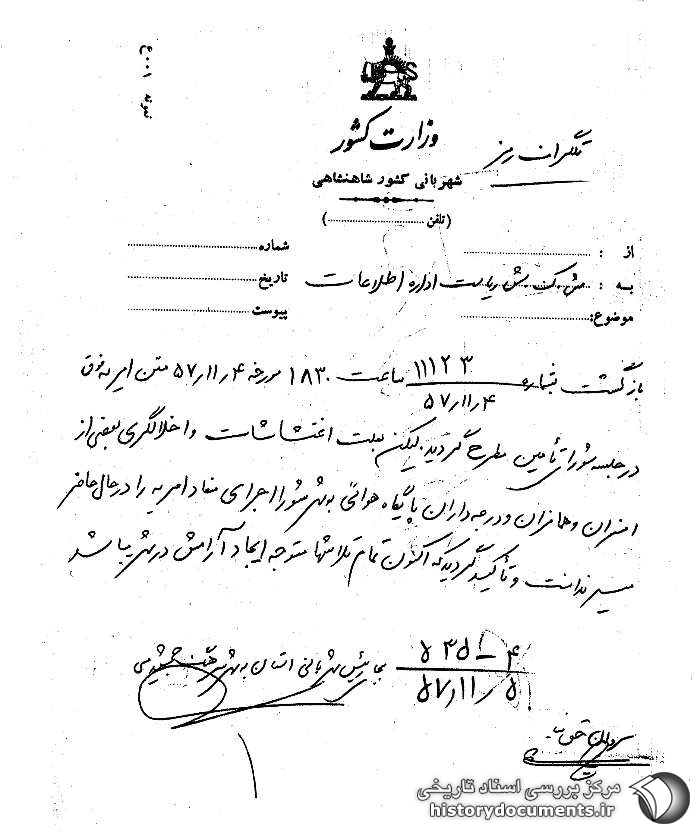 نمونه ۴۰۰۱
وزارت کشور
تلگراف رمز
شهربانی کشور شاهنشاهی
(تلفن ..............................)
از :
شماره
به : ش ک ش ریاست اداره اطلاعات
تاریخ
موضوع:
پیوست
بازگشت بشماره ۱۱۱۲۳ / ۵۷/۱۱/۴ ساعت ۱۸۳۰ مورخه ۵۷/۱۱/۴ متن امریه فوق
در جلسه شورای تأمین مطرح گردید. لیکن بعلت اغتشاشات و اخلالگری بعضی از
افسران و همافران و درجه داران پایگاه هوائی شورا اجرای مفاد امریه را در حال حاضر
میسر ندانست و تأکید گردید که اکنون تمام تلاشها متوجه ایجاد آرامش در شهر باشد
۴-۵۳۵
۵۷/۱۱/۵
رئیس شهربانی استان
مرکز بررسی اسناد تاریخی
historydocuments.ir